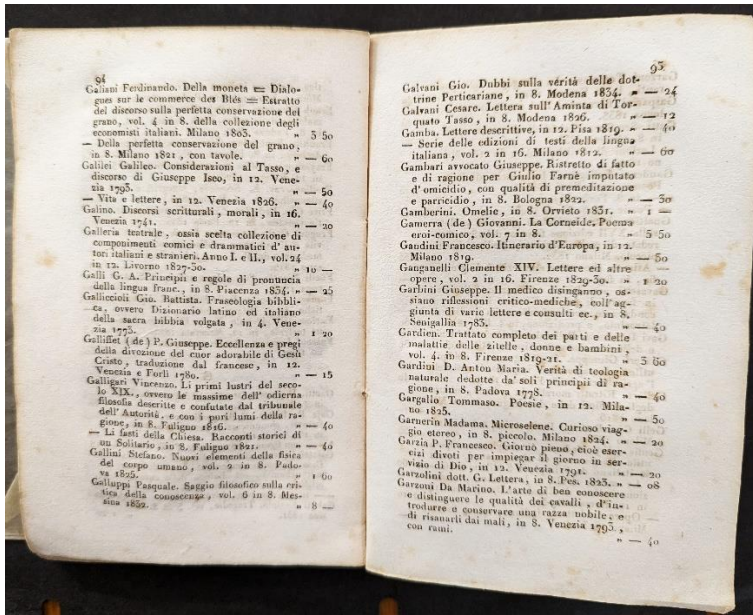 94
Galiani Ferdinando. Della moneta = Dialo-
gues sur le commerce des Blés = Estratto
del discorso sulla perfetta conservazione del
grano, vol. 4 in 8. della collezione degli
economisti italiani. Milano 1803. " 3 50
— Della perfetta conservazione del grano,
in 8. Milano 1821, con tavole. " — 60
Galilei Galileo. Considerazioni al Tasso, e
discorso di Giuseppe Iseo, in 12. Vene-
zia 1793. " — 50
— Vita e lettere, in 12. Venezia 1826. " — 40
Galino. Discorsi scritturali, morali, in 16.
Venezia 1741. " — 20
Galleria teatrale, ossia scelta collezione di
componimenti comici e drammatici d' au-
tori italiani e stranieri. Anno I. e II., vol. 24
in 12. Livorno 1827-30. " 10 —
Galli G. A. Principii e regole di pronuncia
della lingua franc., in 8. Piacenza 1834. " — 25
Galliccioli Gio. Battista. Fraseologia bibbli-
ca, ovvero Dizionario latino ed italiano
della sacra bibbia volgata, in 4. Vene-
zia 1773. " 1 20
Galliffet (de) P. Giuseppe. Eccellenza e pregi
della divozione del cuor adorabile di Gesù
Cristo, traduzione dal francese, in 12.
Venezia e Forlì 1780. " — 15
Galligari Vincenzo. Li primi lustri del seco-
lo XIX., ovvero le massime dell' odierna
filosofia descritte e confutate dal tribunale
dell' Autorità, e con i puri lumi della ra-
gione, in 8. Fuligno 1816. " — 40
— Li fasti della Chiesa. Racconti storici di
un Solitario, in 8. Fuligno 1821. " — 40
Gallini Stefano. Nuovi elementi della fisica
del corpo umano, vol. 2 in 8. Pado-
va 1825. " 1 60
Galluppi Pasquale. Saggio filosofico sulla cri-
tica della conoscenza, vol. 6 in 8. Mes-
sina 1832. " 8 —
95
Galvani Gio. Dubbi sulla verità delle dot-
trine Perticariane, in 8. Modena 1834. " — 24
Galvani Cesare. Lettera sull'Aminta di Tor-
quato Tasso, in 8. Modena 1826. " — 12
Gamba. Lettere descrittive, in 12. Pisa 1819. " — 40
— Serie delle edizioni di testi della lingua
italiana, vol. 2 in 16. Milano 1812. " — 60
Gambari avvocato Giuseppe. Ristretto di fatto
e di ragione per Giulio Farnè imputato
d'omicidio, con qualità di premeditazione
e parricidio, in 8. Bologna 1822. " — 30
Gamberini. Omelie, in 8. Orvieto 1831. " 1 —
Gamerra (de) Giovanni. La Corneide. Poema
eroi-comico, vol. 7 in 8. " 3 50
Gandini Francesco. Itinerario d'Europa, in 12.
Milano 1819. " — 80
Ganganelli Clemente XIV. Lettere ed altre
opere, vol. 2 in 16. Firenze 1829-30. " 1 20
Garbini Giuseppe. Il medico disinganno, os-
siano riflessioni critico-mediche, coll'ag-
giunta di varie lettere e consulti ec., in 8.
Senigallia 1783. " — 40
Gardien. Trattato completo dei parti e delle
malattie delle zitelle, donne e bambini,
vol. 4. in 8. Firenze 1819-21. " 3 60
Gardini D. Anton Maria. Verità di teologia
naturale dedotte da' soli principii di ra-
gione, in 8. Padova 1778. " — 40
Gargallo Tommaso. Poesie, in 12. Mila-
no 1825. " — 50
Garnerin Madama. Microselene. Curioso viag-
gio etereo, in 8. piccolo. Milano 1824. " — 20
Garzia P. Francesco. Giorno pieno, cioè eser-
cizi divoti per impiegar il giorno in ser-
vizio di Dio, in 12. Venezia 1791. " — 20
Garzolini dott. G. Lettera, in 8. Pes. 1823. " — 08
Garzoni Da Marino. L'arte di ben conoscere
e distinguere le qualità dei cavalli, d'in-
trodurre e conservare una razza nobile, e
di risanarli dai mali, in 8. Venezia 1793.,
con rami. " — 40